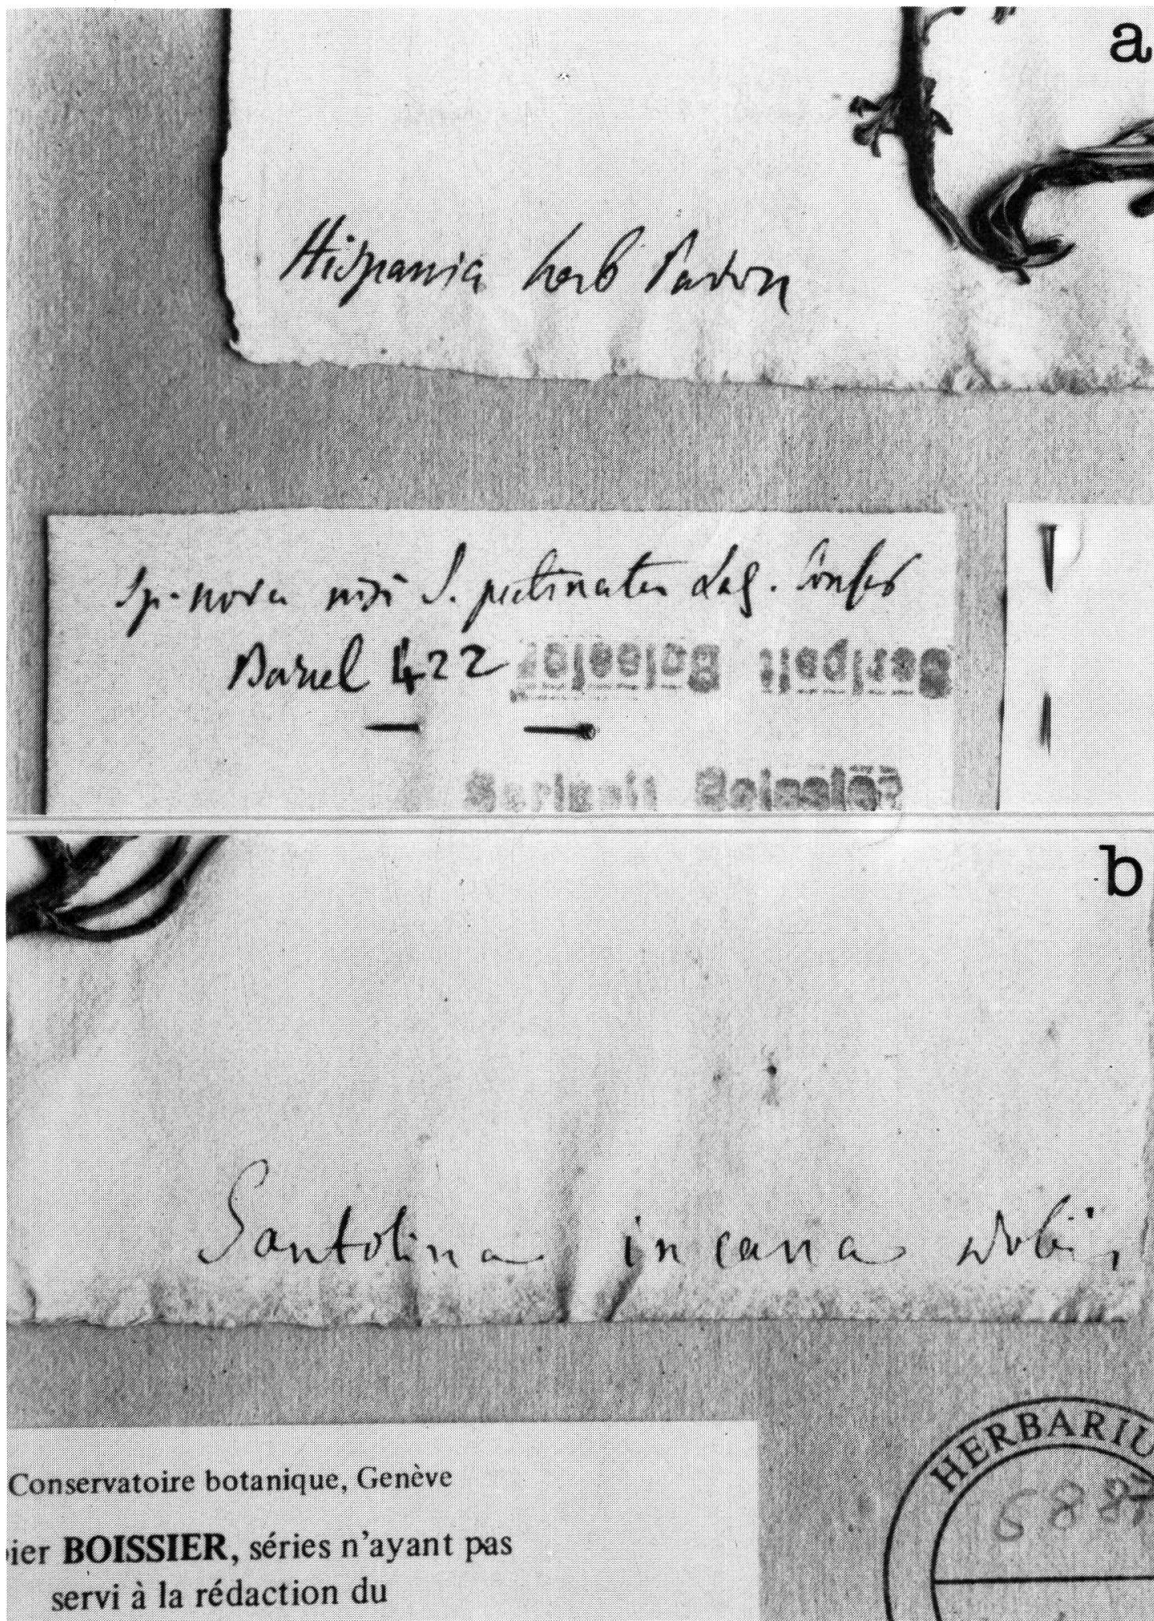 a
Hispania herb Pavon
Sp. nova nisi S. pectinata Lag. Confer
Barrel 422
b
Santolina incana Nobis
Conservatoire botanique, Genève
bier BOISSIER, séries n'ayant pas
servi à la rédaction du
HERBARIU